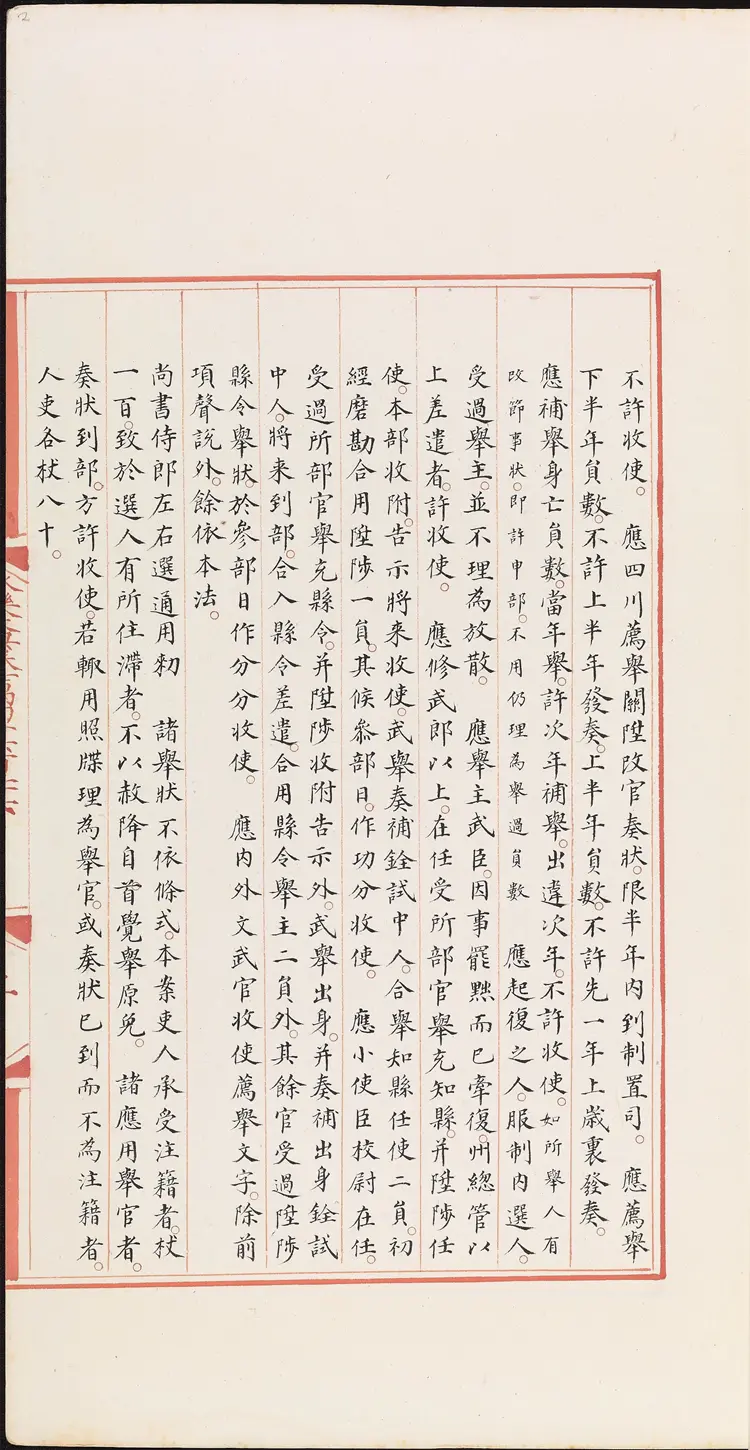 不許收使。　應四川薦舉關陞改官奏狀。限半年內到制置司。　應薦舉
下半年員數。不許上半年發奏。上半年員數。不許先一年上歲裏發奏。
應補舉身亡員數。當年舉。許次年補舉。出違次年。不許收使。如所舉人有
改節事狀。即許申部。不用仍理為舉過員數　應起復之人。服制內選人。
受過舉主。並不理為放散。　應舉主武臣。因事罷黜而已牽復。州總管以
上差遣者。許收使。　應修武郎以上。在任受所部官舉充知縣。并陞陟任
使。本部收附。告示將来收使。武舉奏補銓試中人。合舉知縣任使二員。初
經磨勘合用陞陟一員。其候叅部日。作功分收使。　應小使臣校尉在任。
受過所部官舉充縣令。并陞陟收附告示外。武舉出身。并奏補出身銓試
中人。將来到部。合入縣令差遣。合用縣令舉主二員外。其餘官受過陞陟
縣令舉狀。於參部日作分分收使。　應內外文武官收使薦舉文字。除前
項聲說外。餘依本法。
尚書侍郎左右選通用勑　諸舉狀不依條式。本案吏人承受注籍者。杖
一百。致於選人有所住滯者。不以赦降自首覺舉原免。　諸應用舉官者。
奏狀到部。方許收使。若輙用照牒理為舉官。或奏狀已到而不為注籍者。
人吏各杖八十。
2